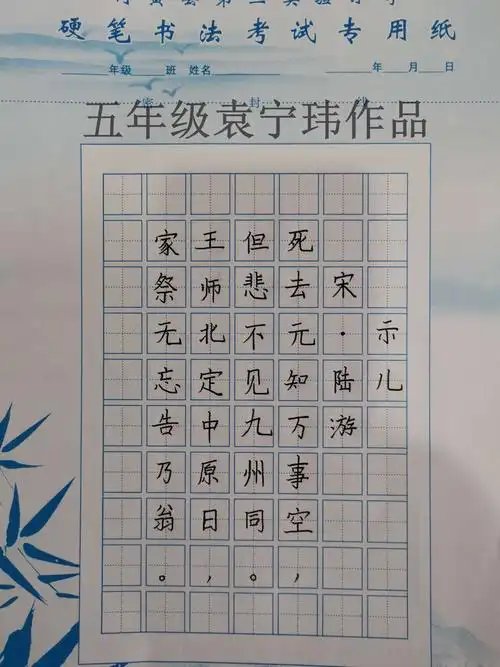 硬笔书法考试专用纸
年级 班 姓名 年 月 日
密 封 线
五年级袁宁玮作品
示儿
宋·陆游
死去元知万事空，
但悲不见九州同。
王师北定中原日，
家祭无忘告乃翁。